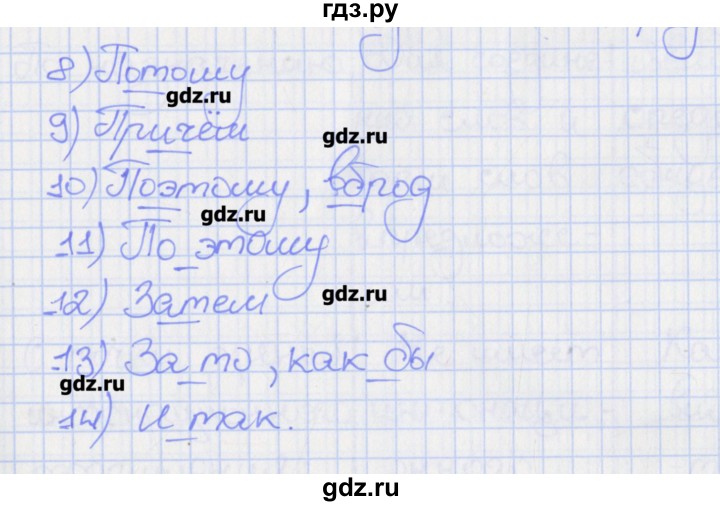 гдз.ру
8) Потому
gdz.ru
9) Причём
gdz.ru
10) Поэтому, в город
gdz.ru
11) По этому
12) Затем
gdz.ru
13) За то, как бы
gdz.ru
14) И так.
gdz.ru